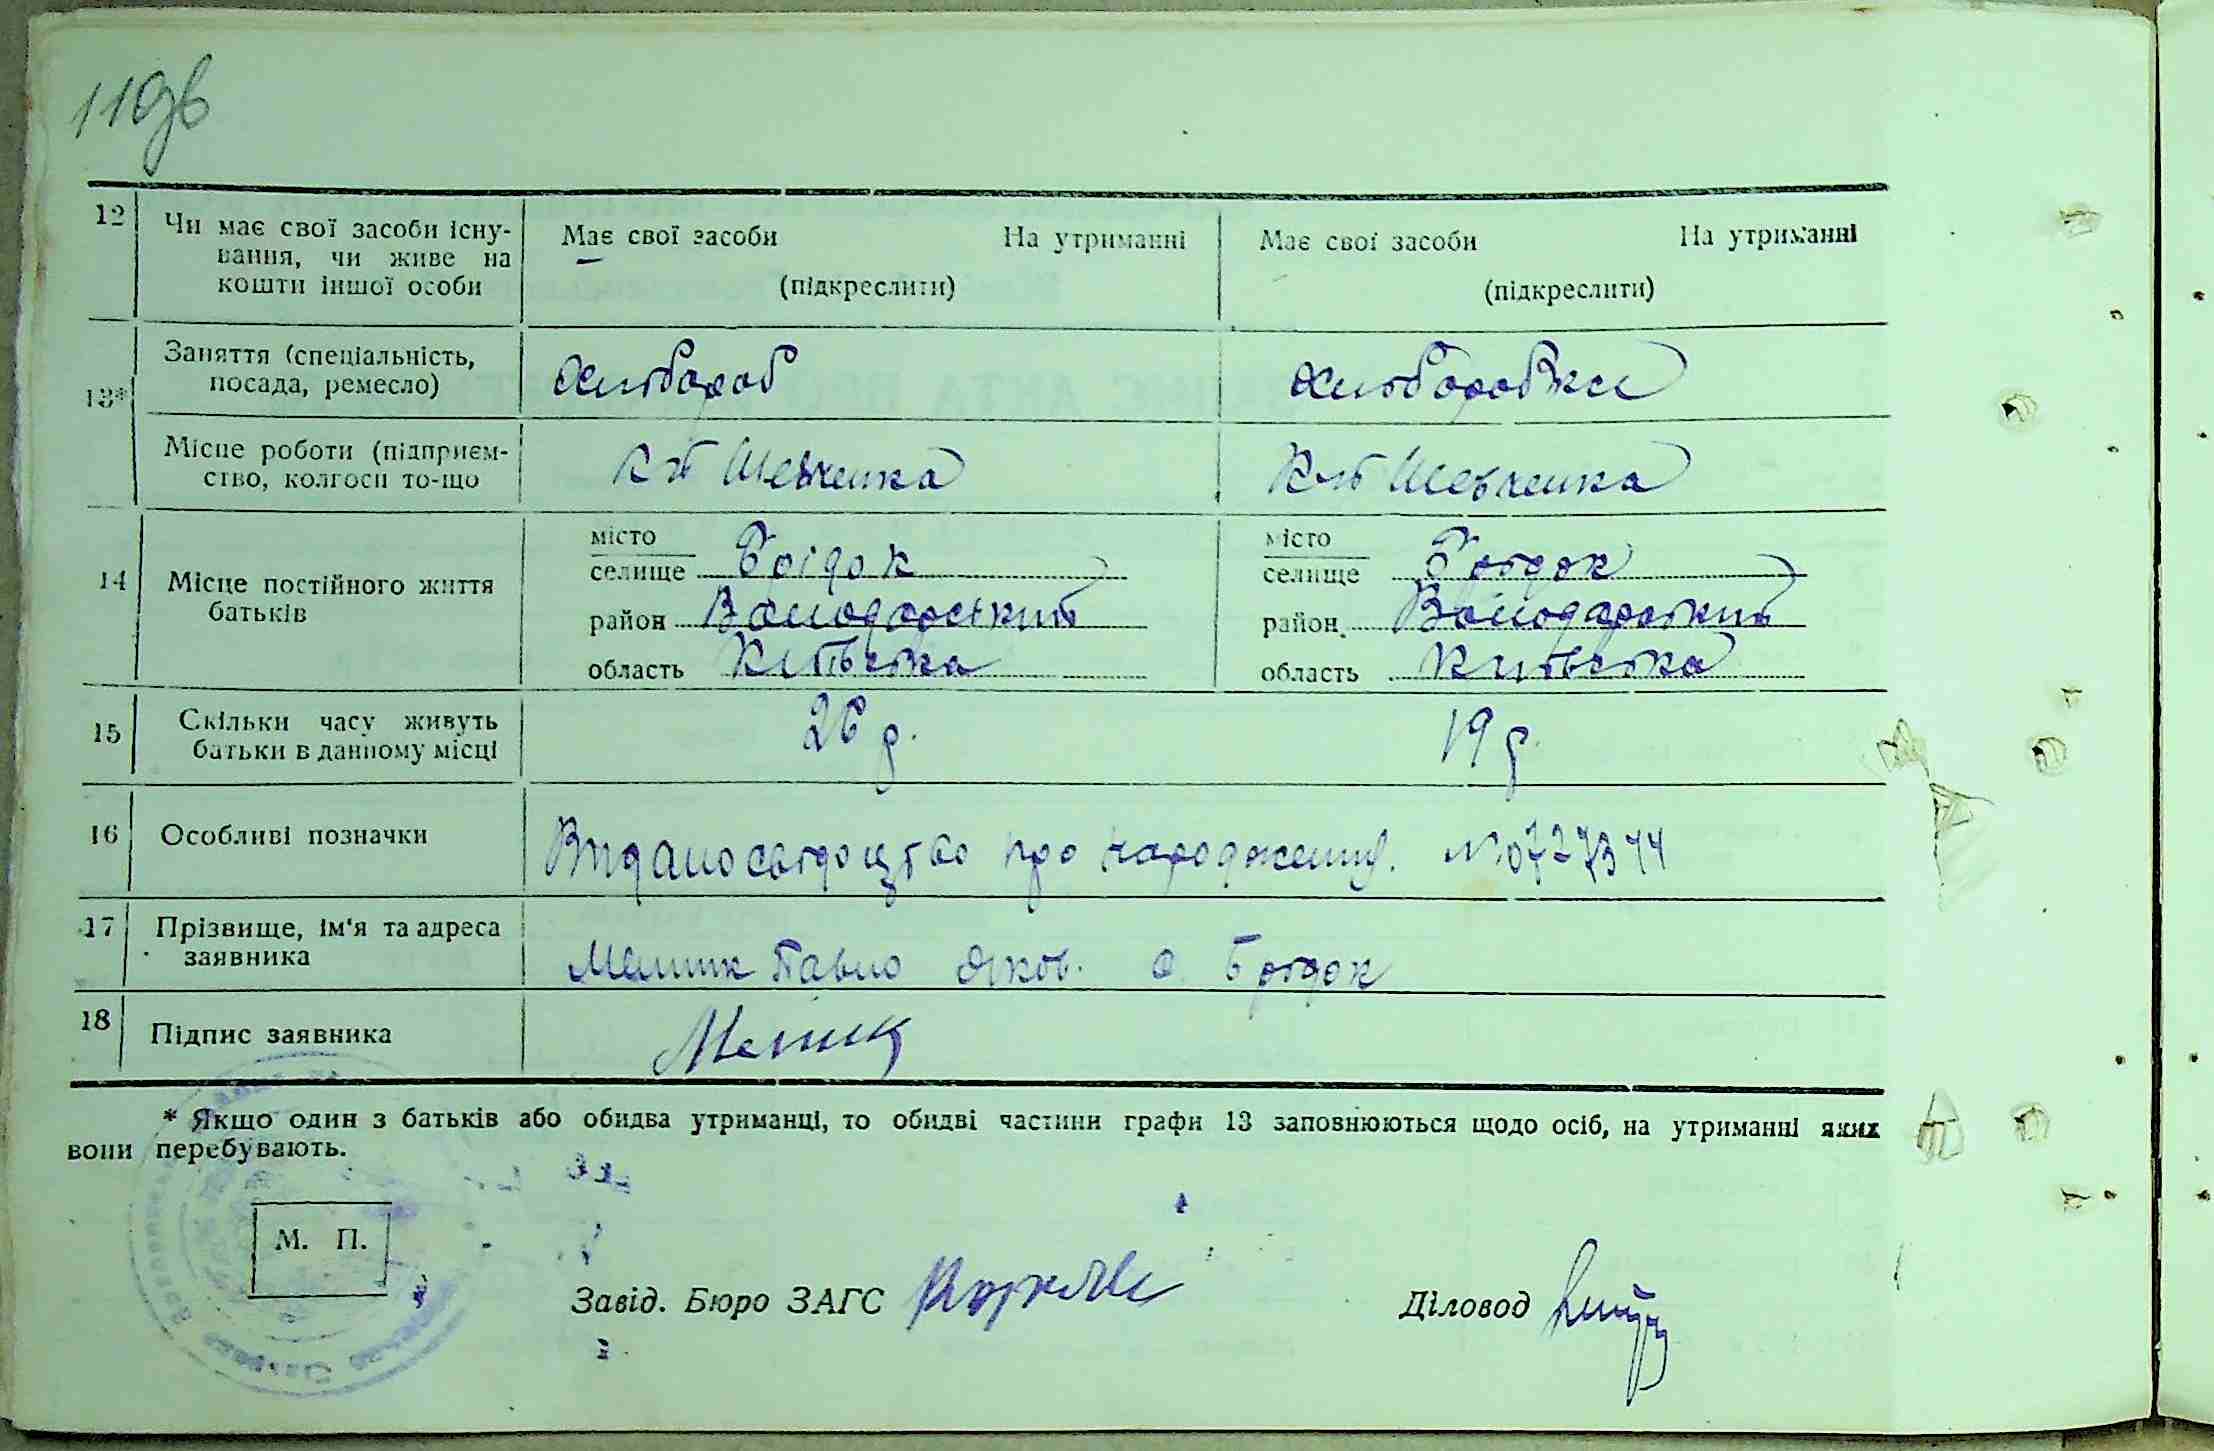 110зв
12 Чи має свої засоби існу- Має свої засоби На утриманні Має свої засоби На утриманні
вання, чи живе на
кошти іншої особи (підкреслити) (підкреслити)
13* Заняття (спеціальність, хлібороб хлібороbка
посада, ремесло)
Місце роботи (підприєм- К-п Шевченка К-п Шевченка
ство, колгосп то-що
14 Місце постійного життя батьків
місто Брідок місто Брідок
селище селище
район Володарський район Володарський
область Київська область Київська
15 Скільки часу живуть 26 р. 19 р.
батьки в данному місці
16 Особливі позначки Видано свідоцтво про народження. № 
17 Прізвище, ім'я та адреса Мельник Павло Яков. с. Брідок
заявника
18 Підпис заявника Мельник
* Якщо один з батьків або обидва утриманці, то обидві частини графи 13 заповнюються щодо осіб, на утриманні яких
вони перебувають.
М. П.
Завід. Бюро ЗАГС
Діловод